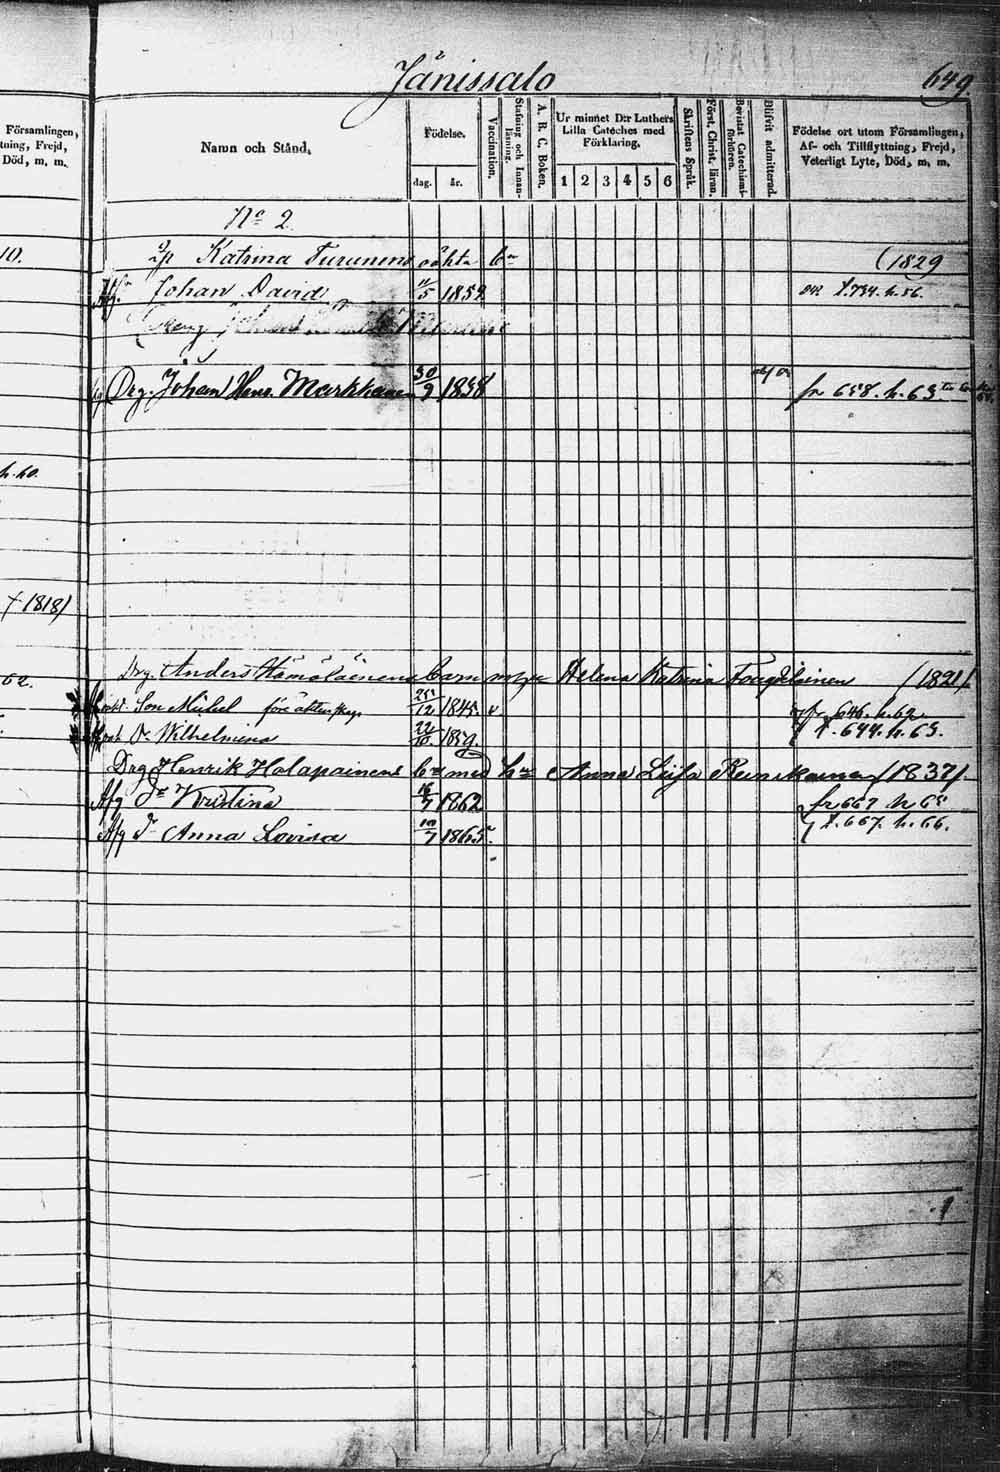 Jänissalo
649
Församlingen,
tning, Frejd,
Död, m, m.
Namn och Stånd.
Födelse.
dag. år.
Vaccination.
Stafning och Innanläsning.
A. B. C. Boken.
Ur minnet D:r Luthers
Lilla Cateches med
Förklaring.
1 2 3 4 5 6
Skriftens Språk.
Först. Christ. läran.
Bevistat Catechismiförhören.
Blifvit admitterad.
Födelse ort utom Församlingen,
Af- och Tillflyttning, Frejd,
Veterligt Lyte, Död, m, m.
No 2
10.
Katrina Turunens oäkta bn (1829
Johan David 11/5 1852 t. 734. h. 56.
Drg. Johan Henr. Markkanen 30/9 1838 fr 658. h. 63
h. 60.
† 1818)
62.
Drg. Anders Hämäläinens barn Helena Katrina (1821).
Son Mickel 25/12 1845. v fr 646. h. 62
Dr Wilhelmina 22/10 1859. t. 644. h. 63.
Drg Henrik Halapainens bn med hu Anna Liisa (1837).
Afg Dr Kristina 16/7 1862 fr 667 h 65
Afg Dr Anna Lovisa 10/7 1865. t. 667. h. 66.